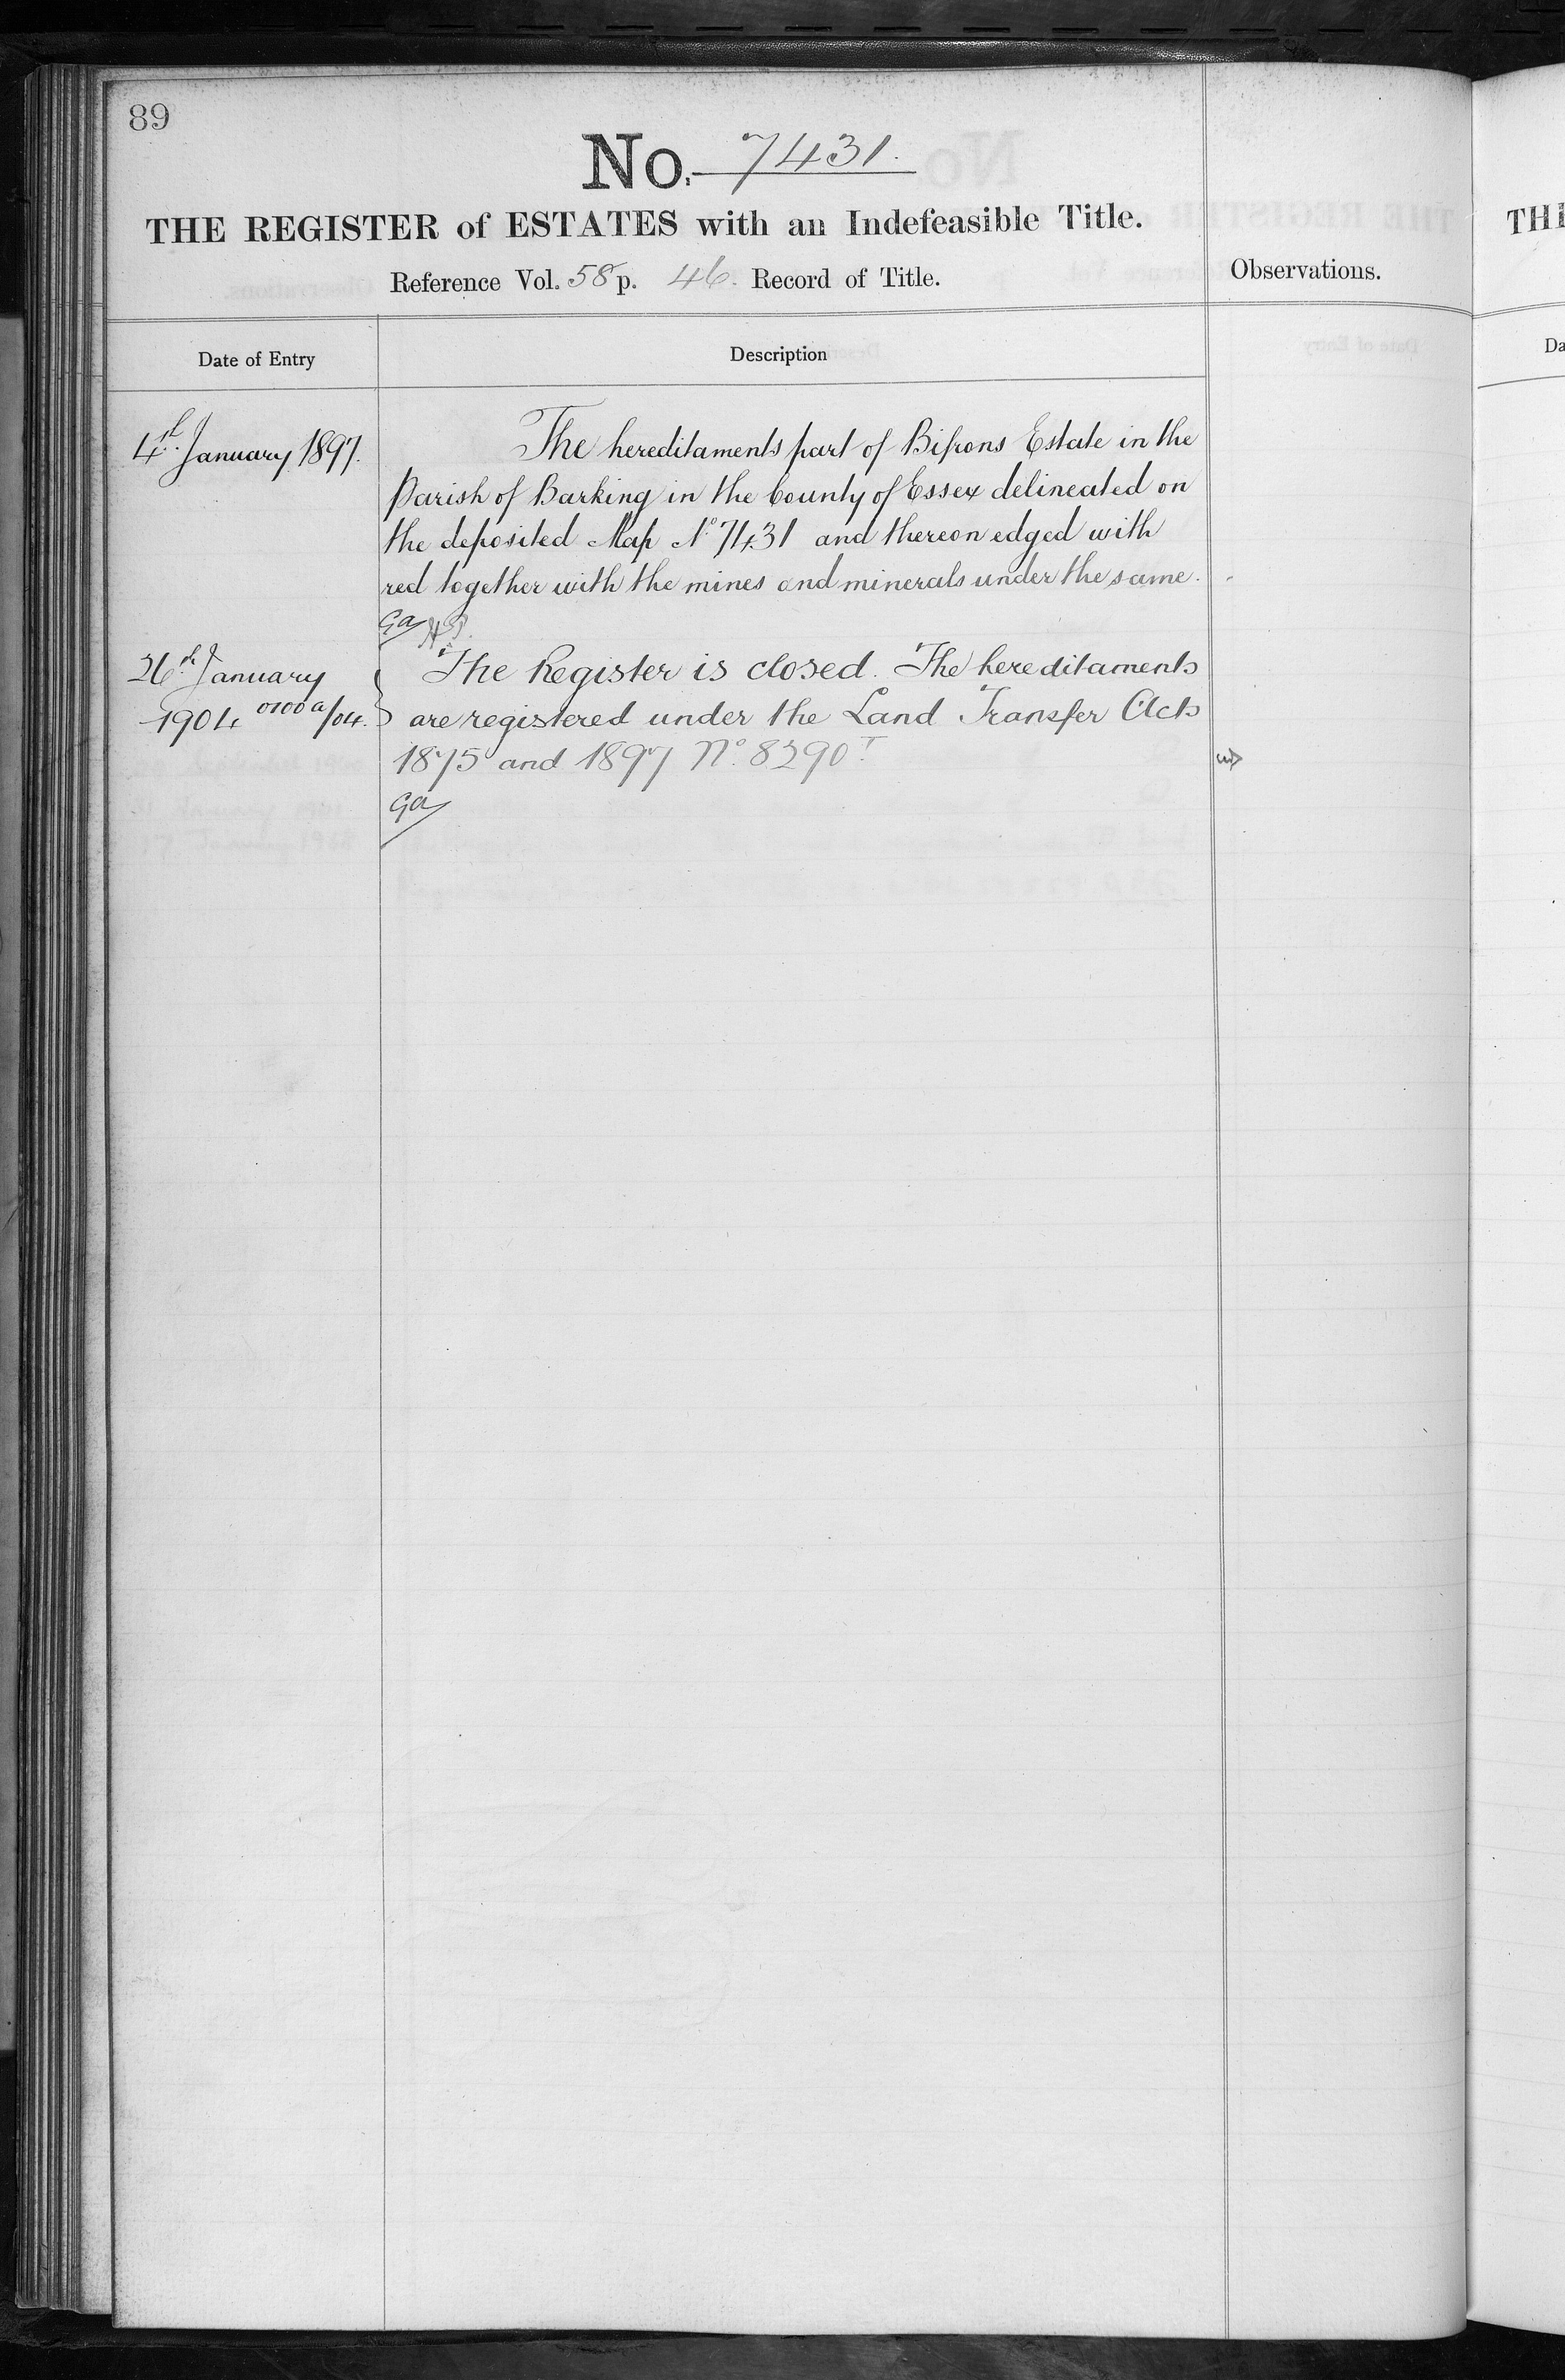 89
No. 7431.
THE REGISTER of ESTATES with an Indefeasible Title.
Reference Vol. 58 p. 46. Record of Title.
Observations.
Date of Entry
Description
4th January 1897.
The hereditaments part of Bifrons Estate in the
Parish of Barking in the County of Essex delineated on
the deposited Map No 7431 and thereon edged with
red together with the mines and minerals under the same.
Ga
26th January
1904 0100a/04.
The Register is closed. The hereditaments
are registered under the Land Transfer Acts
1875 and 1897 No. 8290
Ga
THE
Da